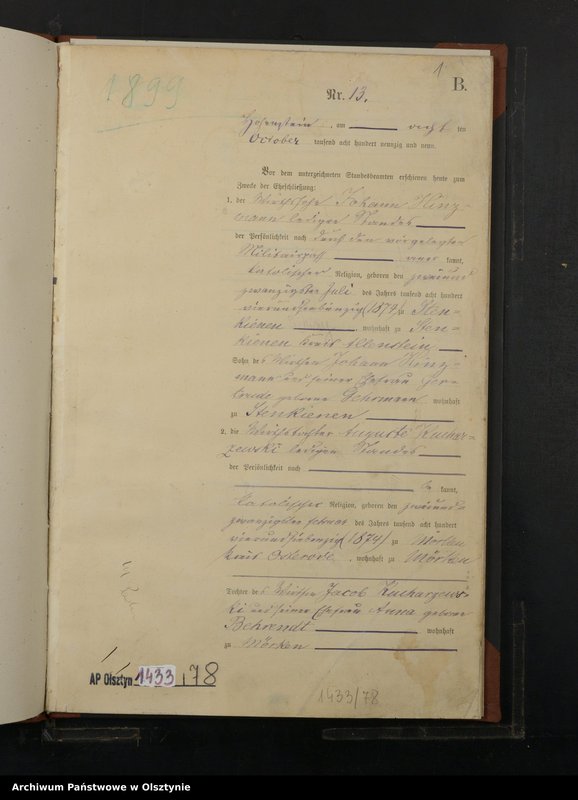 1899
1
B.
Nr. 13.
Hohenstein, am acht ten
October tausend acht hundert neunzig und neun.
Vor dem unterzeichneten Standesbeamten erschienen heute zum
Zwecke der Eheschließung:
1. der Wirthssohn Johann Kinz-
mann ledigen Standes
der Persönlichkeit nach durch den vorgelegten
Militairpaß aner kannt,
katolischer Religion, geboren den zweiund
zwanzigsten Juli des Jahres tausend acht hundert
vierundsiebenzig (1874) zu Sten-
kienen, wohnhaft zu Sten-
kienen Kreis Allenstein
Sohn des Wirthen Johann Kinz-
mann und seiner Ehefrau Ger-
trude geborene Gehrmann wohnhaft
zu Stenkienen
2. die Wirthstochter Auguste Kuchar-
zewski ledigen Standes
der Persönlichkeit nach
be kannt,
katolischer Religion, geboren den zweiund-
zwanzigsten Februar des Jahres tausend acht hundert
vierundsiebenzig (1874) zu Mörken
Kreis Osterode, wohnhaft zu Mörken
Tochter des Wirthen Jacob Kucharzews-
ki und seiner Ehefrau Anna geborene
Behrendt wohnhaft
zu Mörken
AP Olsztyn 1433 / 78
1433/78
Archiwum Państwowe w Olsztynie